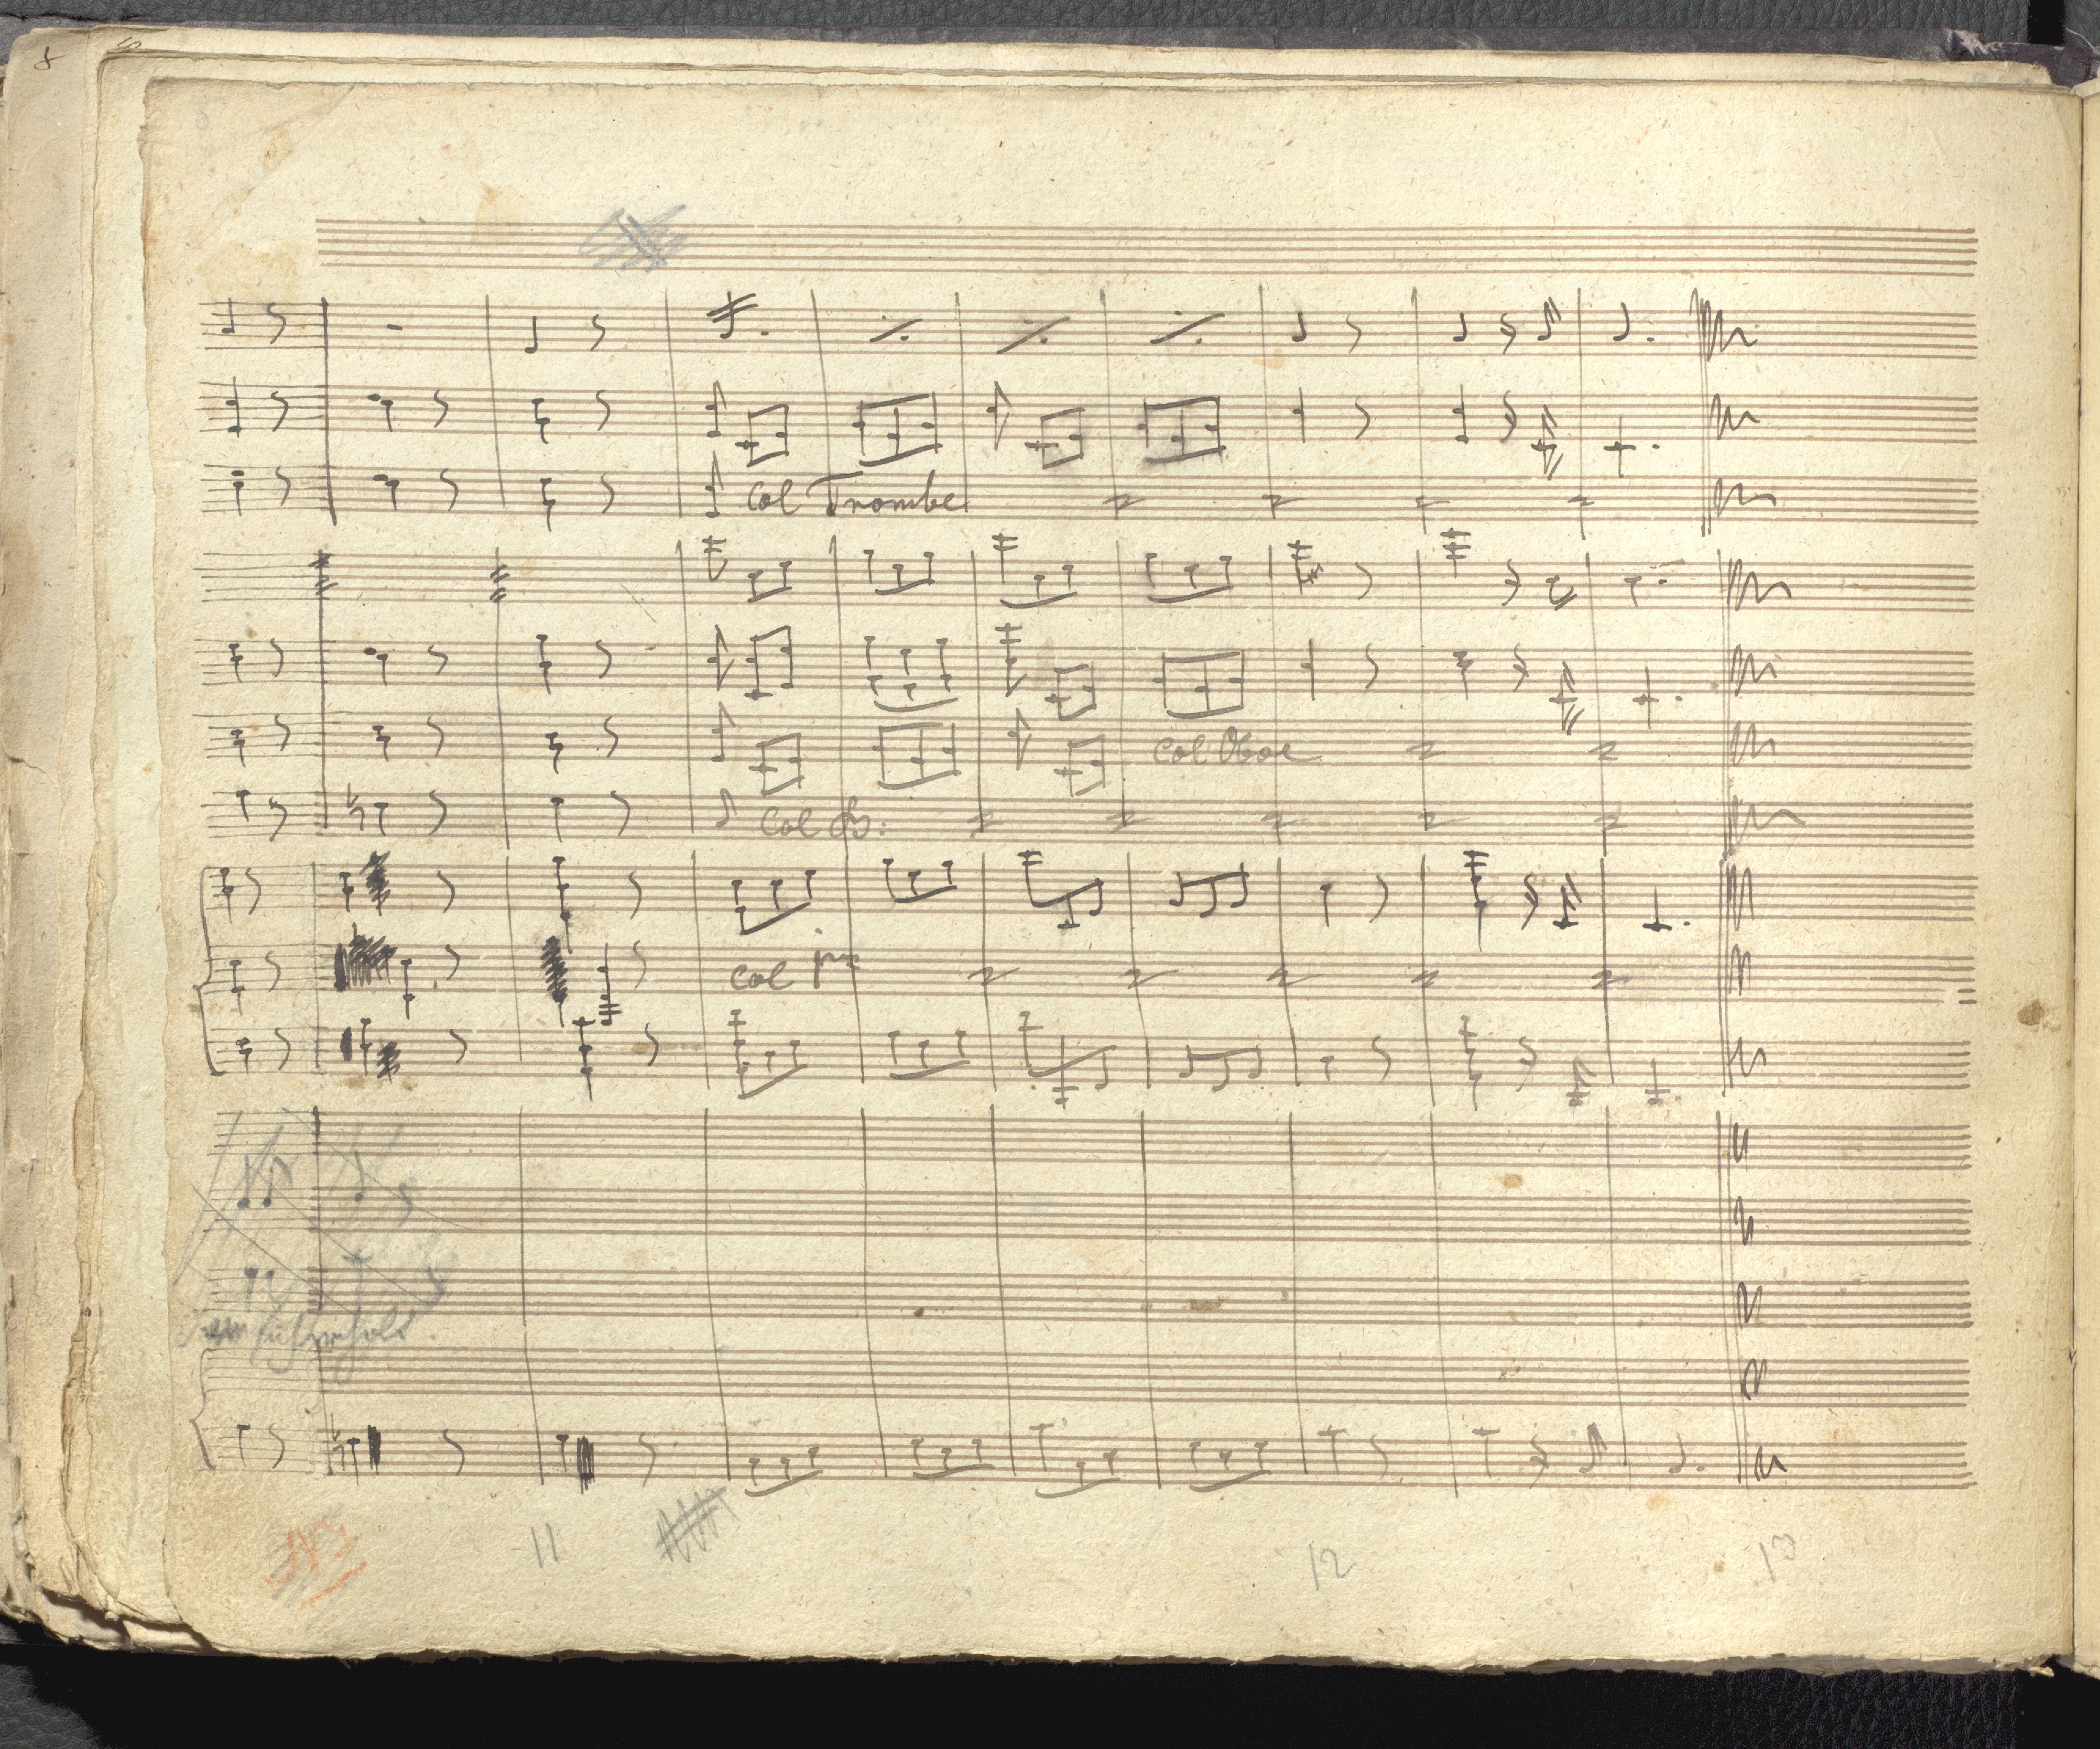 8
Col Trombe
Col Oboe
Col fg:
Col pmo
11
12
13